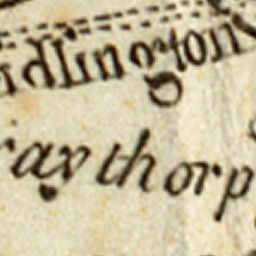 dlington
raythorp